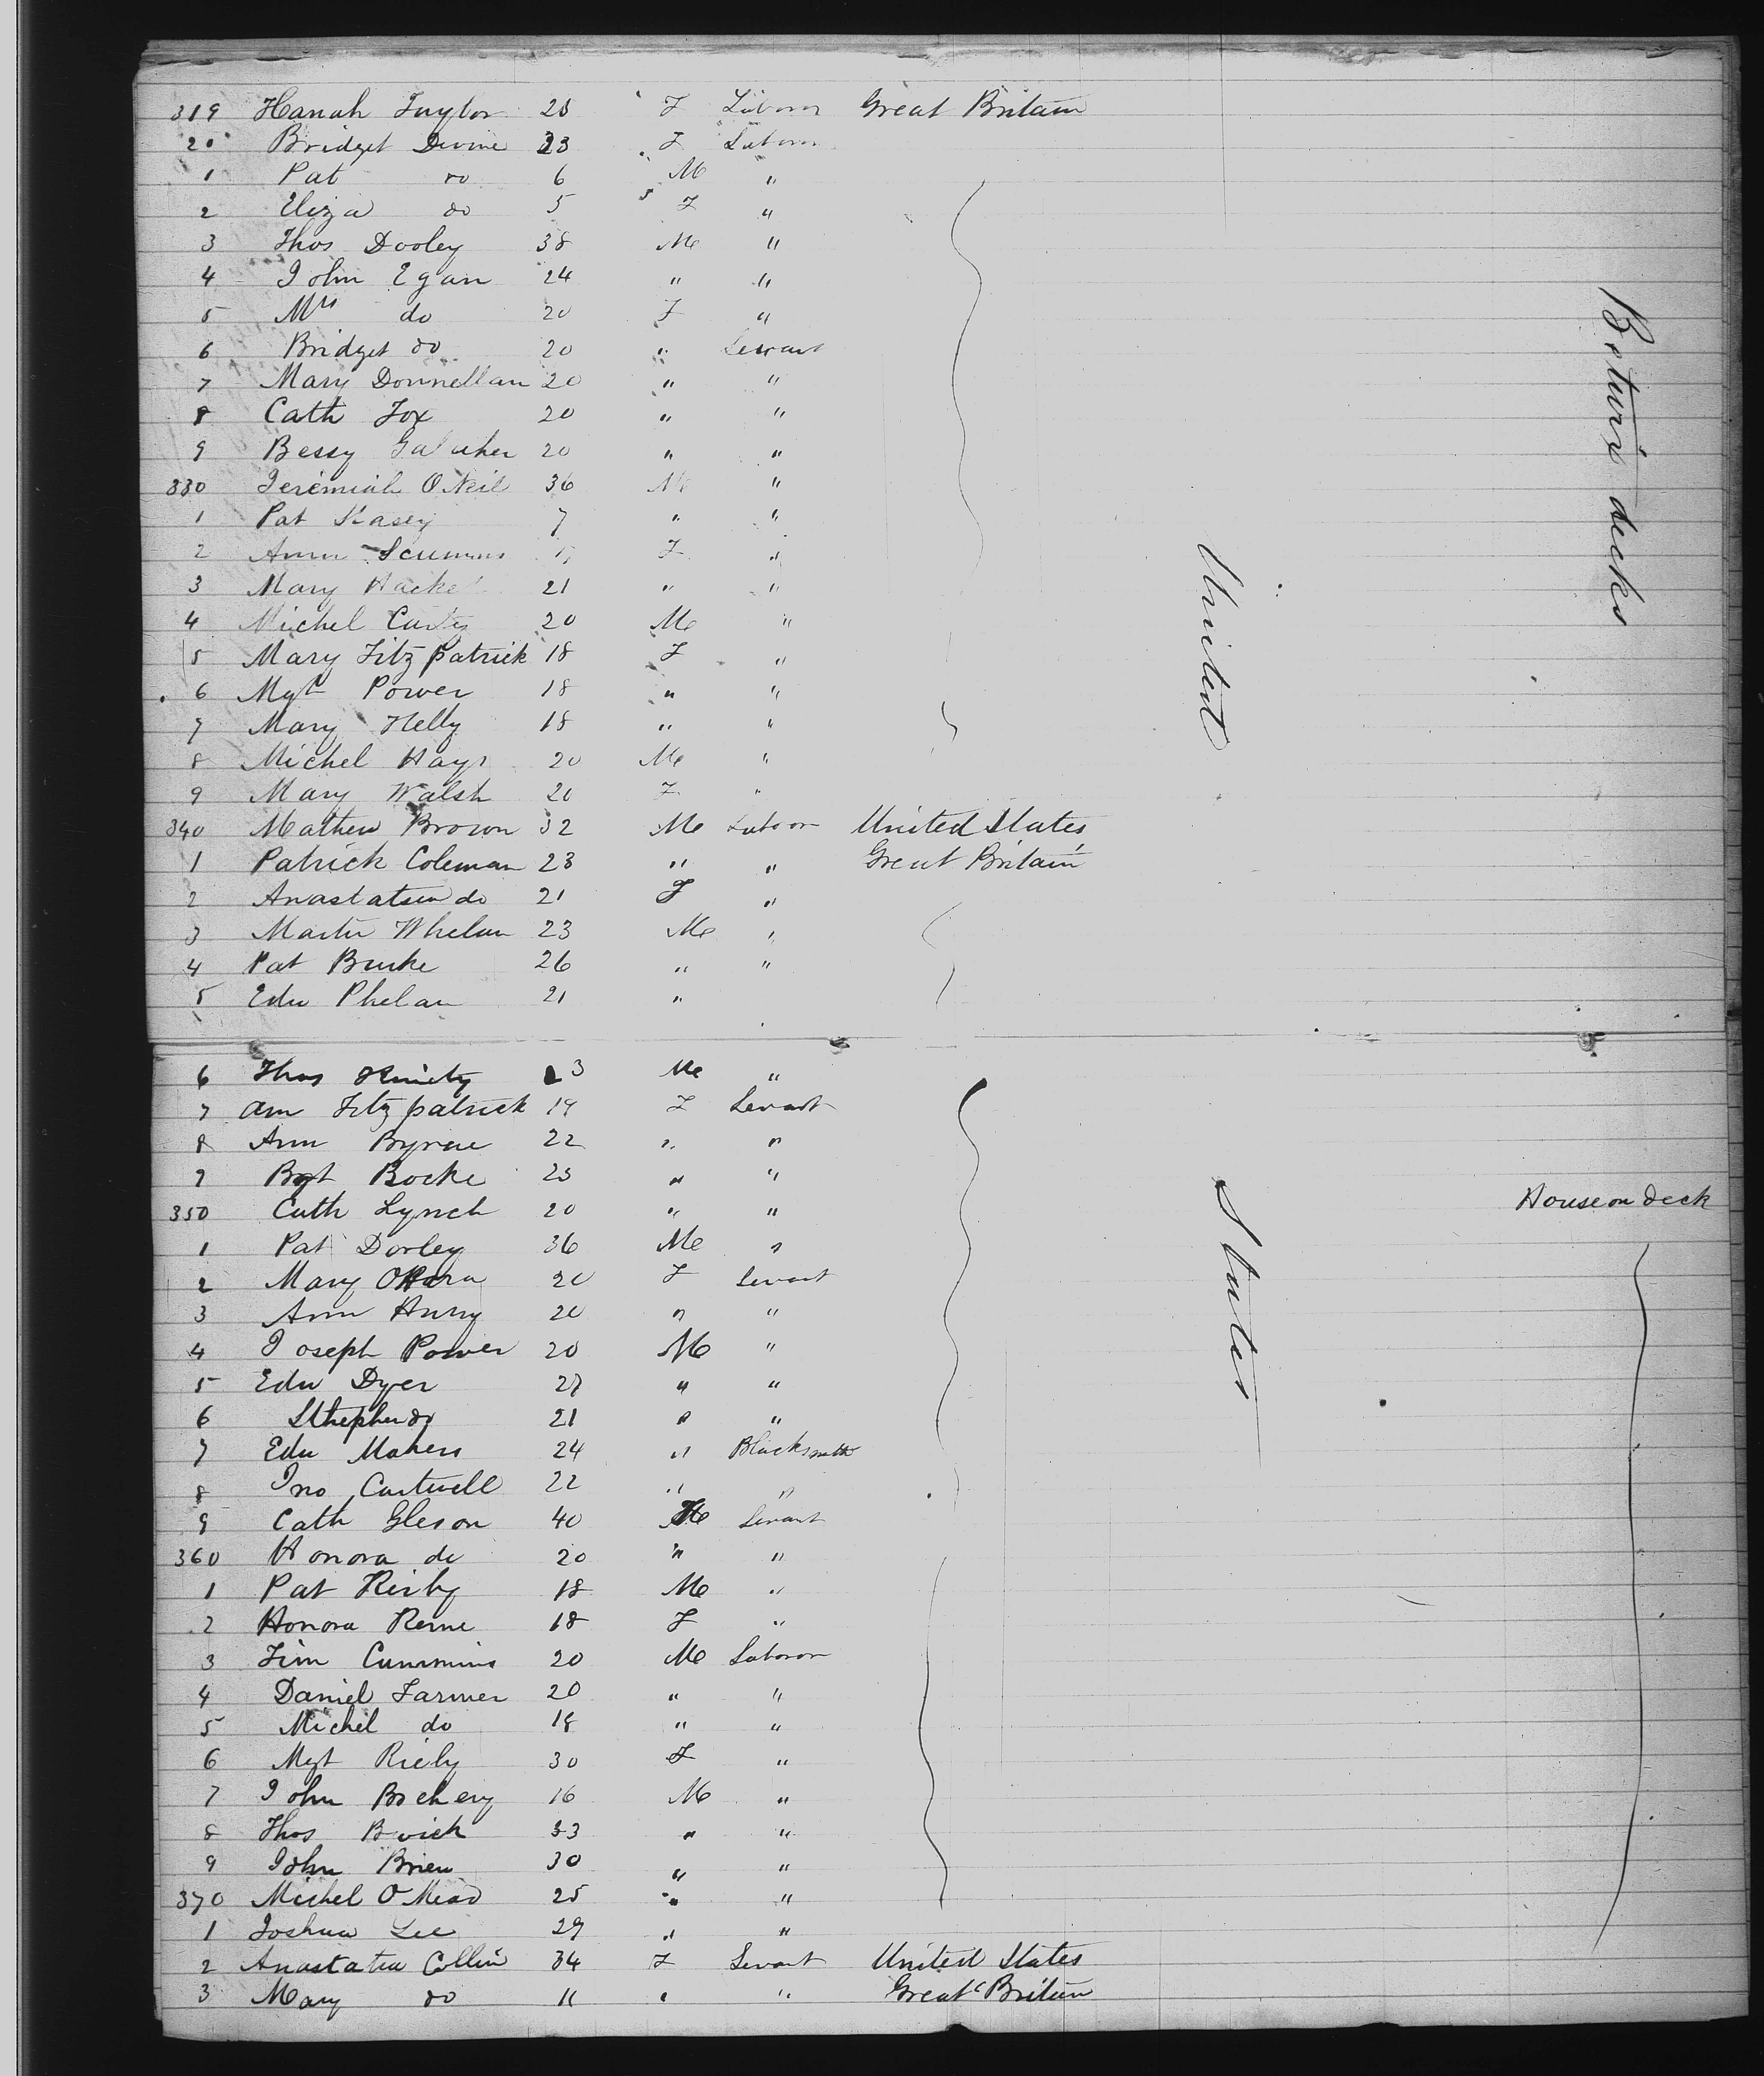 319 Hanah Taylor 23 F Laborer Great Britain
20 Bridget Devine 33 F Laborer
1 Pat do 6 M "
2 Eliza do 5 F "
3 Thos Dooley 38 M "
4 John Egan 24 " "
5 Mrs do 20 F "
6 Bridget do 20 " Servant
7 Mary Donnellan 20 " "
8 Cath Fox 20 " "
9 Bessy 20 " "
330 Jeremiah O Neil 36 M "
1 Pat Kasey 7 " "
2 Ann F "
3 Mary Hacket 21 " "
4 Michel 20 M "
5 Mary Fitzpatrick 18 F "
6 Mgt Power 18 " "
7 Mary Kelly 18 " "
8 Michel Hays 20 M "
9 Mary Walsh 20 F "
340 Mathew Brown 32 M Labor United States
1 Patrick Coleman 23 " " Great Britain
2 Anastatsia do 21 F "
3 Martin Whelan 23 M "
4 Pat Burke 26 " "
5 Edw Phelan 21 "
6 Thos 23 M "
7 Ann Fitzpatrick 19 F Servant
8 Ann Byrne 22 " "
9 Bgt Bocke 23 " "
350 Cath Lynch 20 " "
1 Pat Dorley 36 M "
2 Mary OHara 20 F Servant
3 Ann Hurry 20 " "
4 Joseph Power 20 M "
5 Edw Dyer 27 " "
6 Sthephen do 21 " "
7 Edw Mahers 24 " Blacksmith
8 Jno Cartwell 22 " "
9 Cath Gleson 40 F Servant
360 Honora do 20 " "
1 Pat Kirby 18 M "
2 Honora 18 F "
3 Jim Cummins 20 M Laboror
4 Daniel Farmer 20 " "
5 Michel do 18 " "
6 Mgt Riely 30 F "
7 John 16 M "
8 Thos 33 " "
9 John Brien 30 " "
370 Michel O Mead 25 " "
1 Joshua Lee 29 " "
2 Anastatia Collin 34 F Servant United States
3 Mary do 11 " " Great Britain
United
States
Betwix decks
House on deck